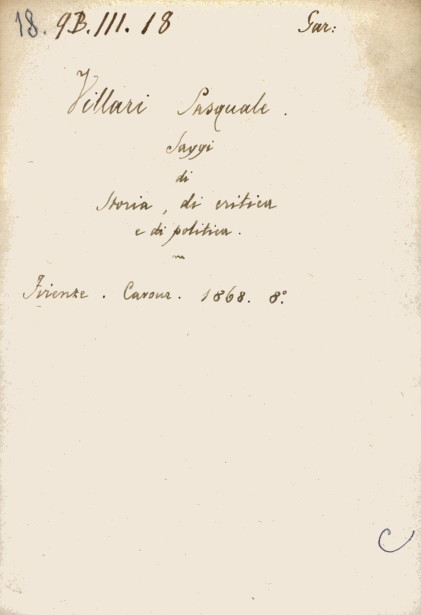 18. 9B.III.18 Gar:
Villari Pasquale.
Saggi
di
Storia, di critica
e di politica.
Firenze. Cavour. 1868. 8.°
C